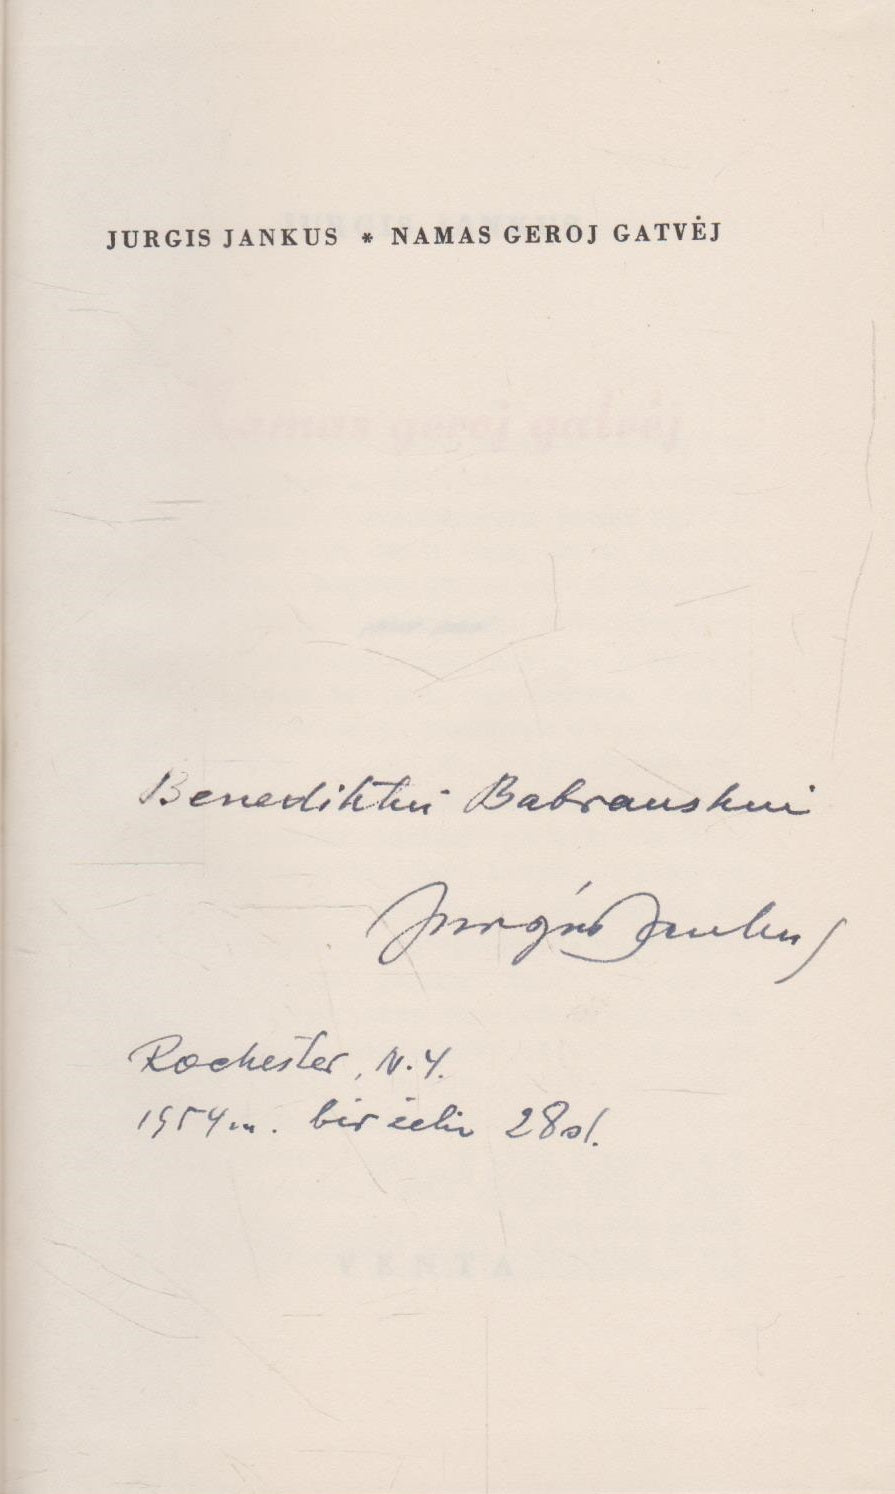 JURGIS JANKUS * NAMAS GEROJ GATVĖJ
Benediktui Babrauskui
Jurgis Jankus
Rochester, N.Y.
1954 m. birželio 28 d.
VENTA